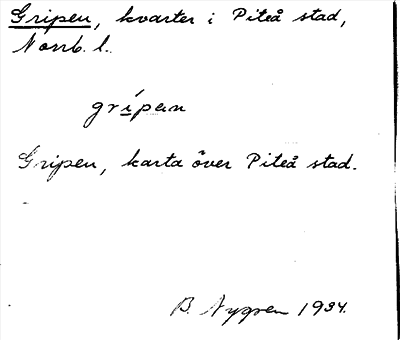 Gripen, kvarter i Piteå stad,
Norrb. l.
grípan
Gripen, karta över Piteå stad.
B. Nygren 1934.